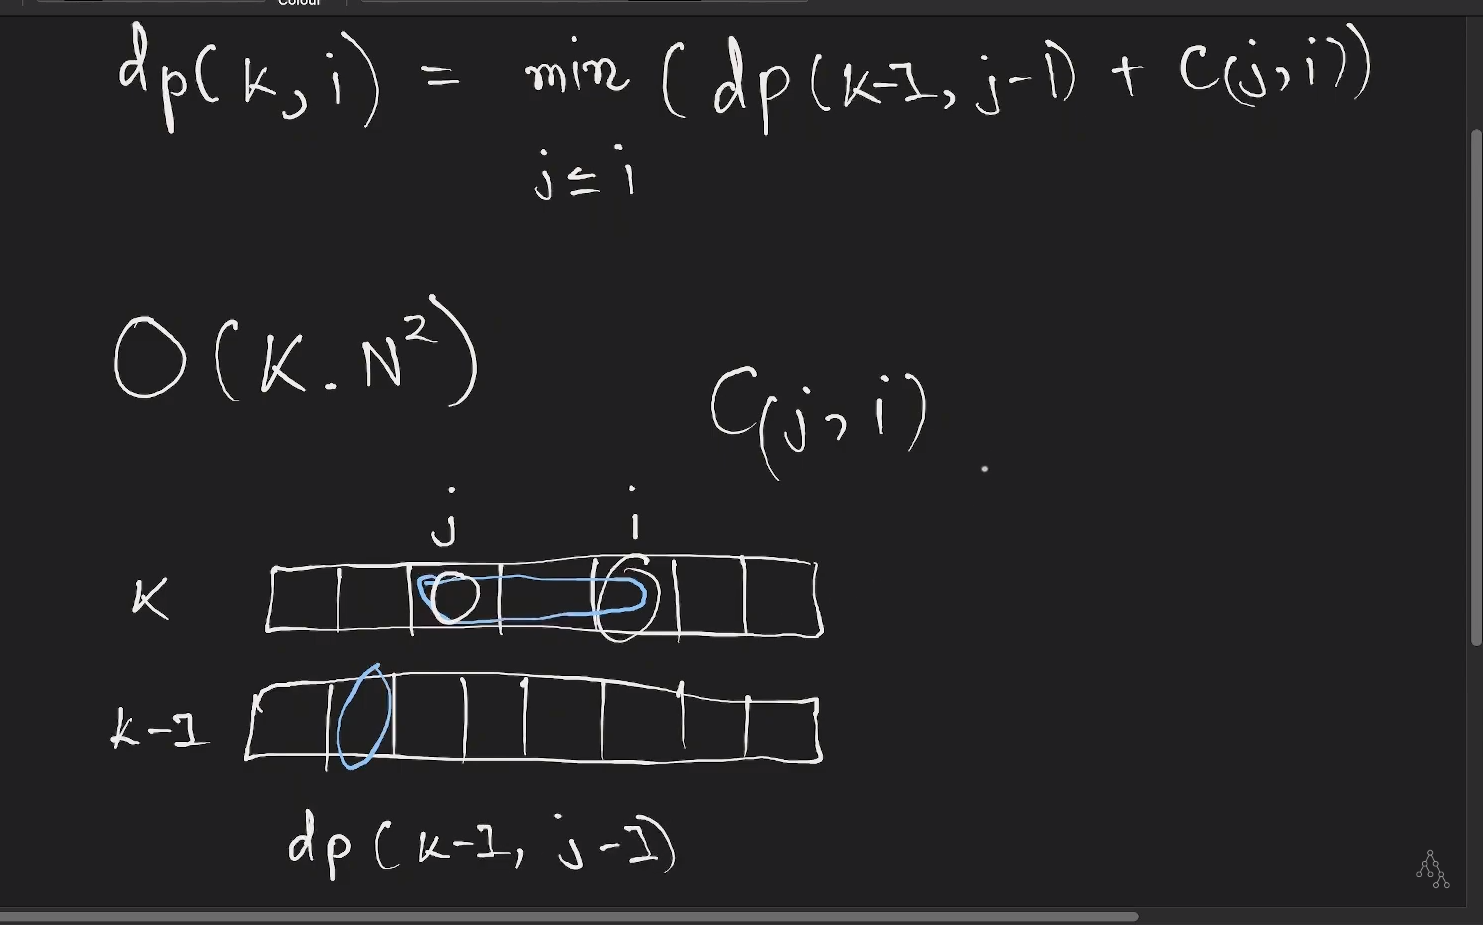 Colour
dp(k,i) = min (dp(k-1, j-1) + C(j,i))
j≤i
O(K.N²)
C(j,i)
j i
K
k-1
dp(k-1, j-1)